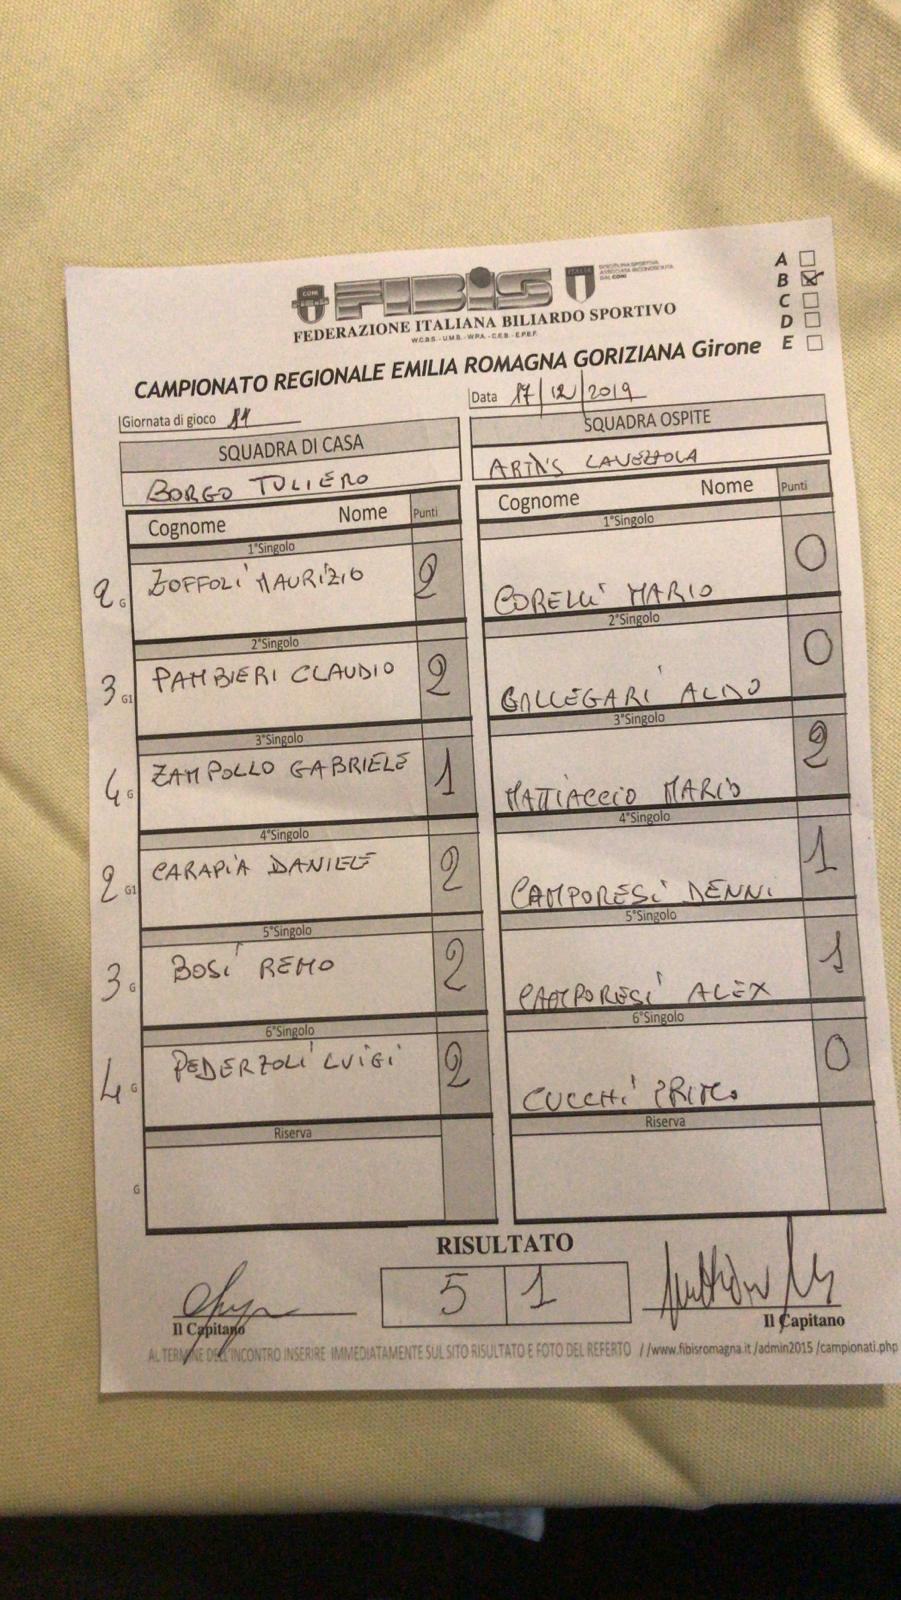 A
B
C
D
E
CONI
FIBIS
ITALIA
DISCIPLINA SPORTIVA
ASSOCIATA RICONOSCIUTA
DAL CONI
FEDERAZIONE ITALIANA BILIARDO SPORTIVO
W.C.B.S. - U.M.B. - W.P.A. - C.E.B. - E.P.B.F.
CAMPIONATO REGIONALE EMILIA ROMAGNA GORIZIANA Girone
Giornata di gioco 11
Data 17/12/2019
SQUADRA DI CASA
SQUADRA OSPITE
BORGO TULIERO
Cognome Nome Punti
Cognome Nome Punti
1°Singolo
1°Singolo
2 G ZOFFOLI MAURIZIO 2
CORELLI MARIO 0
2°Singolo
2°Singolo
3 G1 PAMBIERI CLAUDIO 2
ALDO 0
3°Singolo
3°Singolo
4 G ZAMPOLLO GABRIELE 1
MATTIACCIO MARIO 2
4°Singolo
4°Singolo
2 G1 CARAPIA DANIELE 2
CAMPORESI DENNI 1
5°Singolo
5°Singolo
3 G BOSI REMO 2
CAMPORESI ALEX 1
6°Singolo
6°Singolo
4 G PEDERZOLI LUIGI 2
CUCCHI 0
Riserva
Riserva
G
RISULTATO
5 1
Il Capitano
Il Capitano
AL TERMINE DELL'INCONTRO INSERIRE IMMEDIATAMENTE SUL SITO RISULTATO E FOTO DEL REFERTO //www.fibisromagna.it /admin2015 /campionati.php